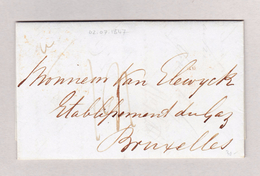 Monsieur Van Elewyck
Etablissement du Gaz
Bruxelles